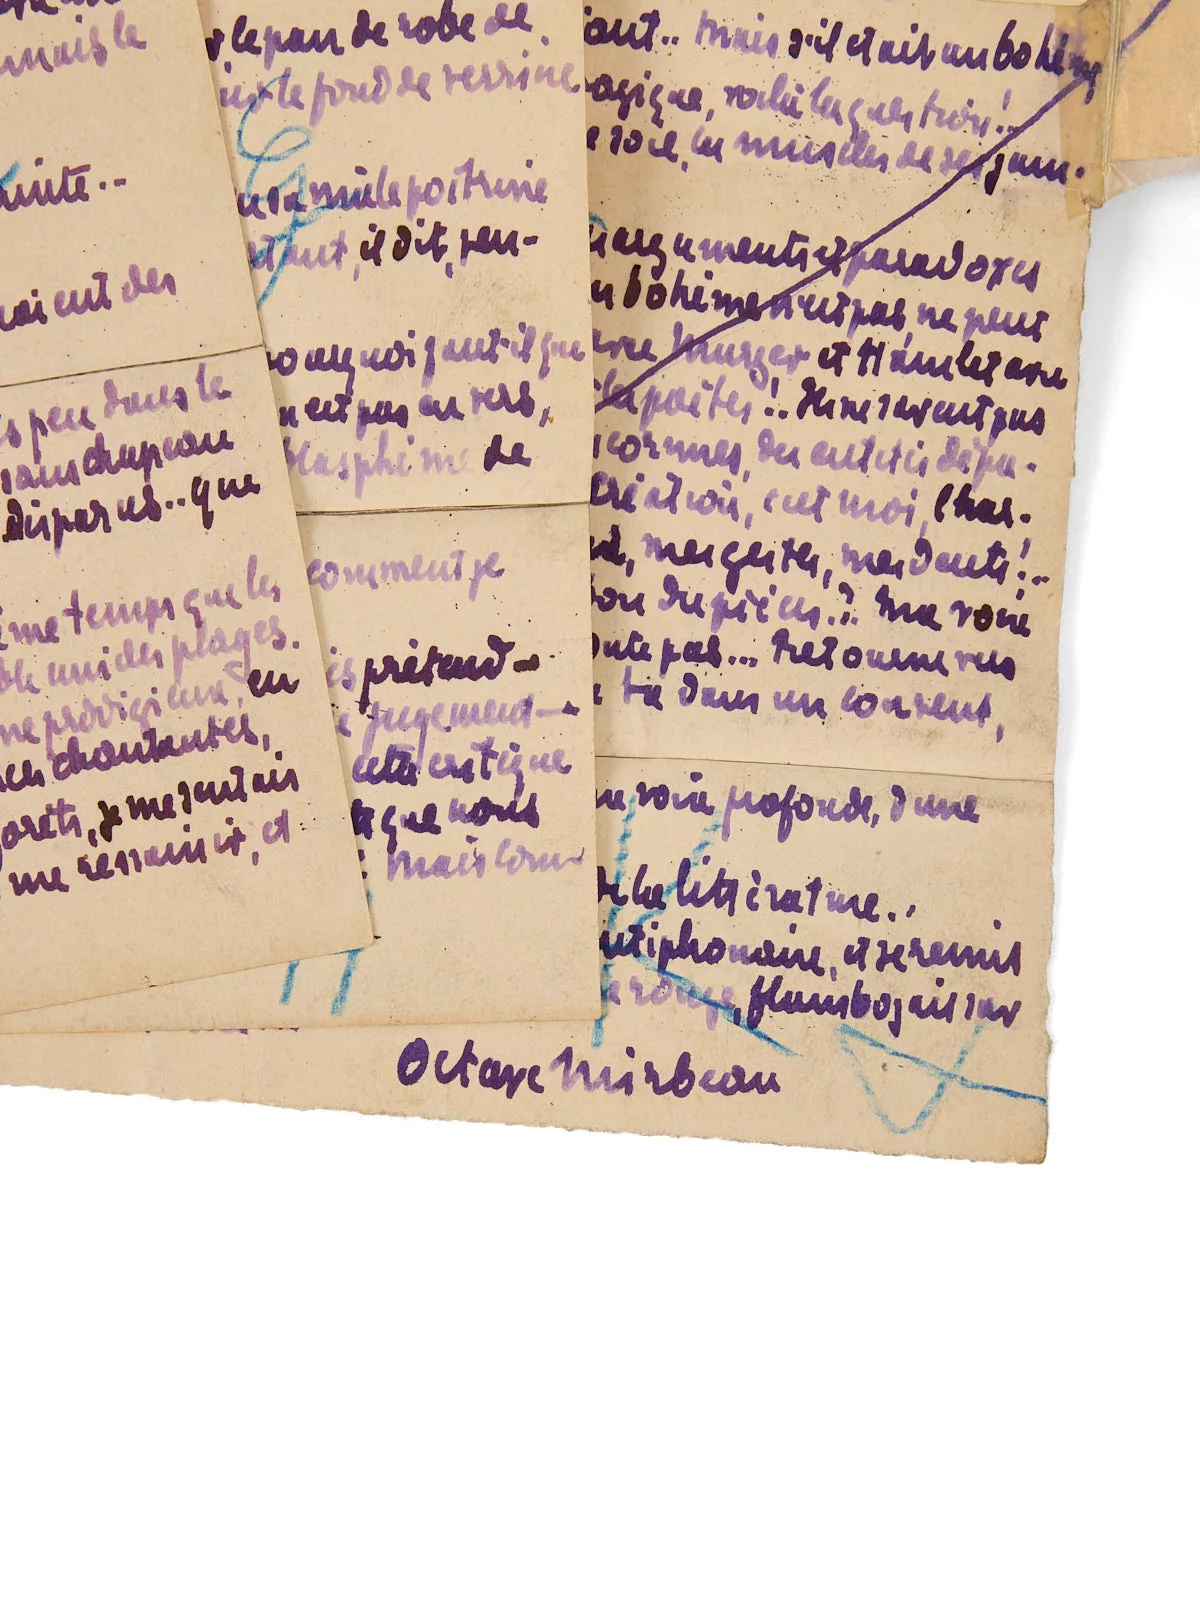 mais le
ainte..
oient des
s peu dans le
sans chapeau
disparus.. que
ême temps que les
ble uni des plages.
ne prodigieux, en
ces chantantes,
forêts, je me sentais
me ressaisir, et
le pan de robe de
sur le fond de verrine
sa mâle poitrine
stant, il dit, ren-
pourquoi faut-il que
n'est pas en vers,
blasphème de
comment je
is prétend—
e jugement—
cette critique
que nous
: mais com-
ant.. Mais s'il était un bohème
agique, voilà la question!..
de soie, les muscles de ses jam-
arguments et paradoxes
bohème n'est pas, ne peut
Murger et Hamlet avec
les poètes!.. Ils ne savent pas
cormes, des entités dépa-
création, c'est moi, l'has-
mes gestes, mes dents!..
on du pièces.?. Ma voix
pas... Retourne vers
toi dans un couvent,
voix profonde, d'une
de la littérature..
antiphonaire, et se remit
rouge, flamboyait sur
Octave Mirbeau